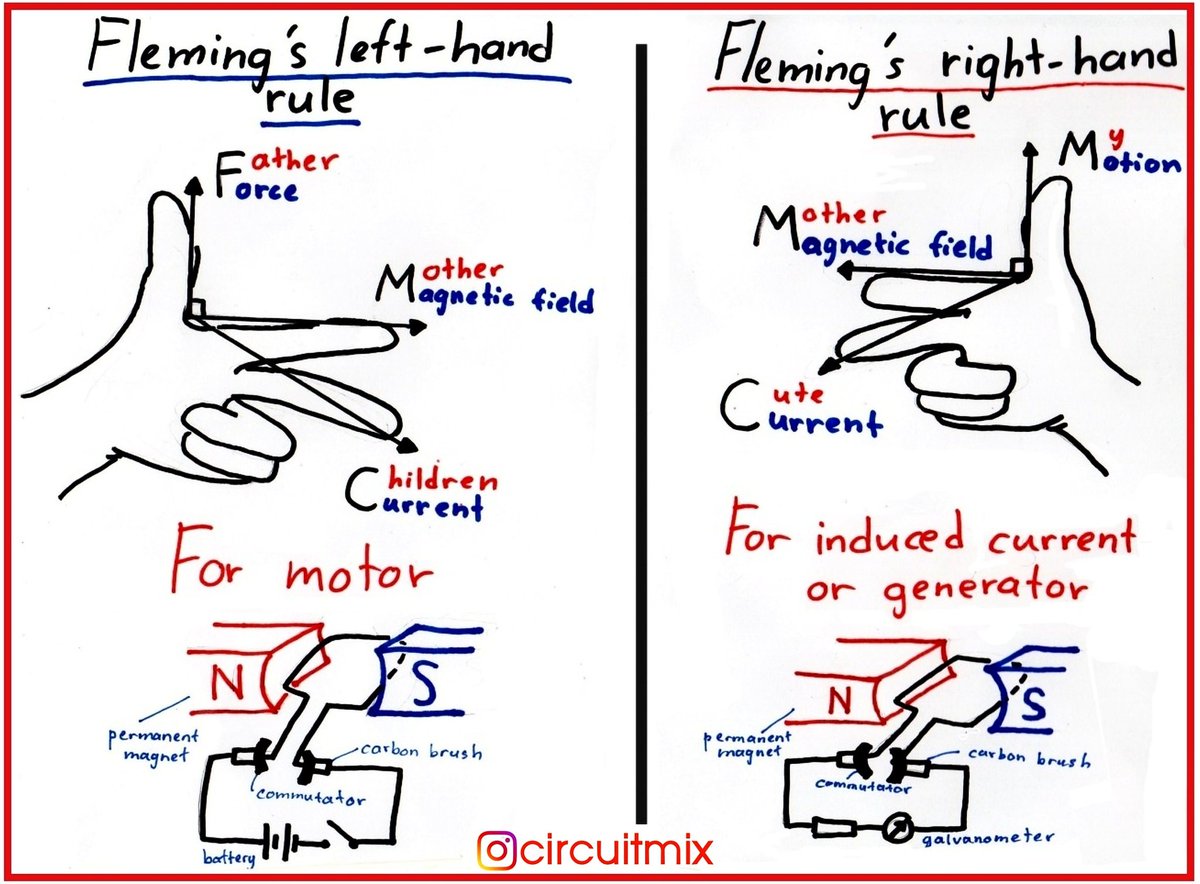 Fleming's left-hand
rule
Father
Force
Mother
Magnetic field
Children
Current
For motor
N
S
permanent
magnet
carbon brush
commutator
battery
Fleming's right-hand
rule
My
Motion
Mother
Magnetic field
Cute
Current
For induced current
or generator
N
S
permanent
magnet
carbon brush
commutator
galvanometer
circuitmix